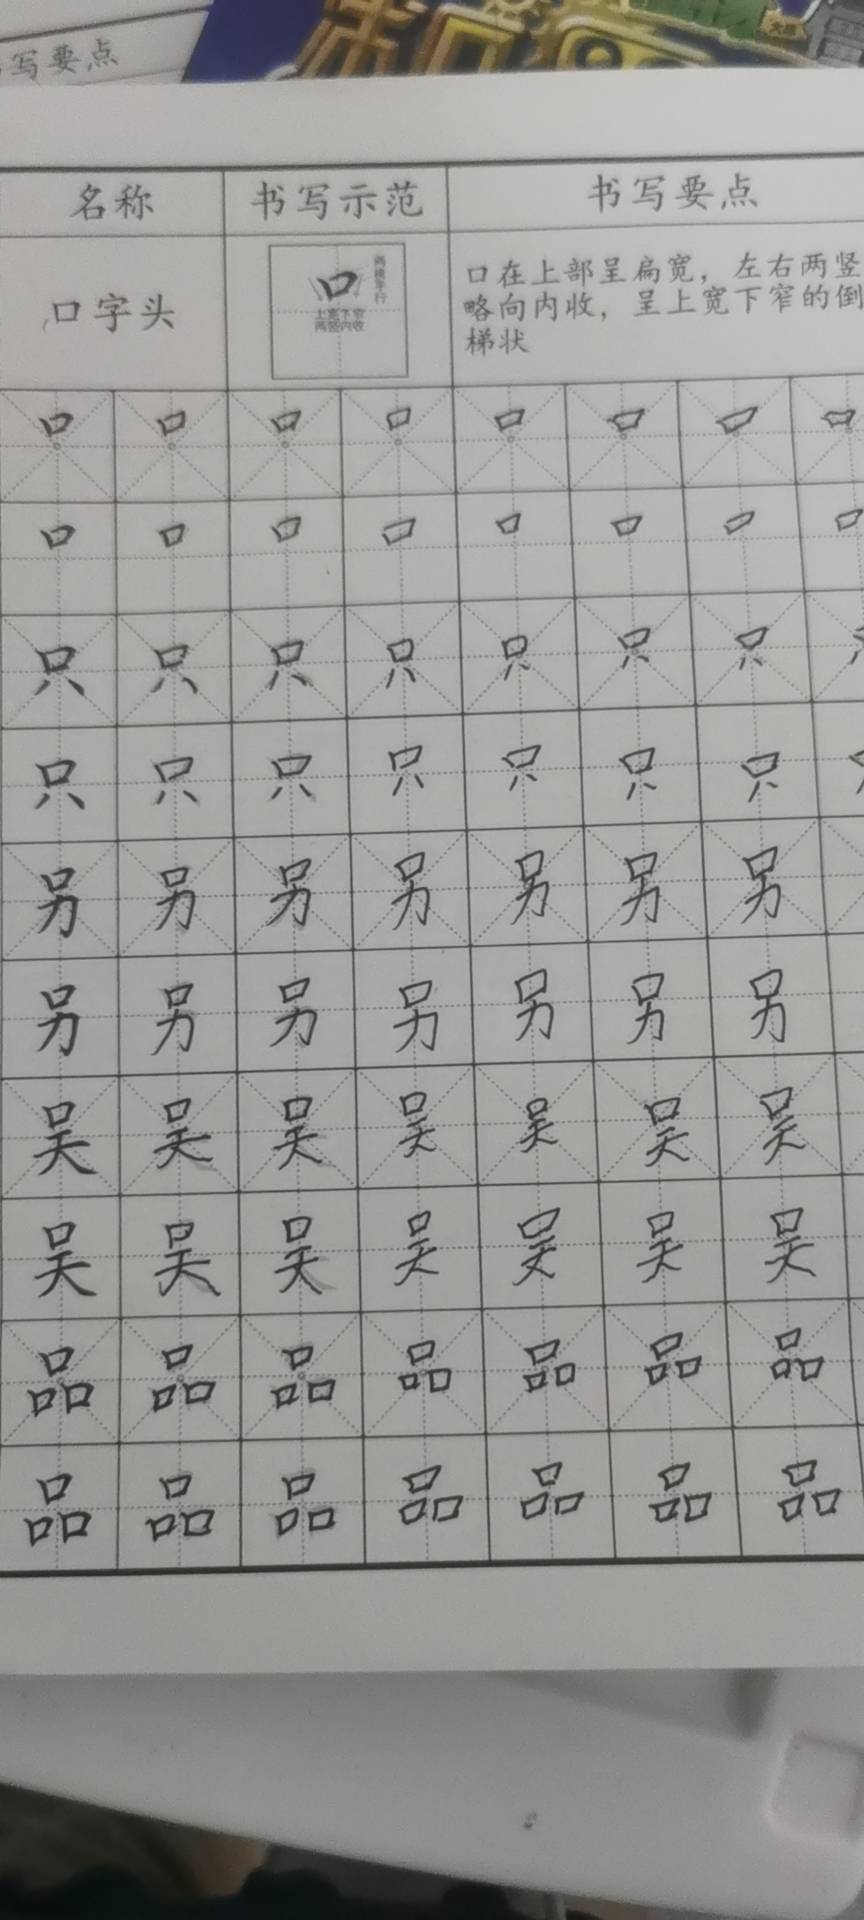 写要点
名称 书写示范 书写要点
口字头
口
两横平行
上宽下窄
两竖内收
口在上部呈扁宽，左右两竖
略向内收，呈上宽下窄的倒
梯状
口 口 口 口 口 口 口 口
口 口 口 口 口 口 口 口
只 只 只 只 只 只 只
只 只 只 只 只 只 只
另 另 另 另 另 另 另
另 另 另 另 另 另 另
吴 吴 吴 吴 吴 吴 吴
吴 吴 吴 吴 吴 吴 吴
品 品 品 品 品 品 品
品 品 品 品 品 品 品